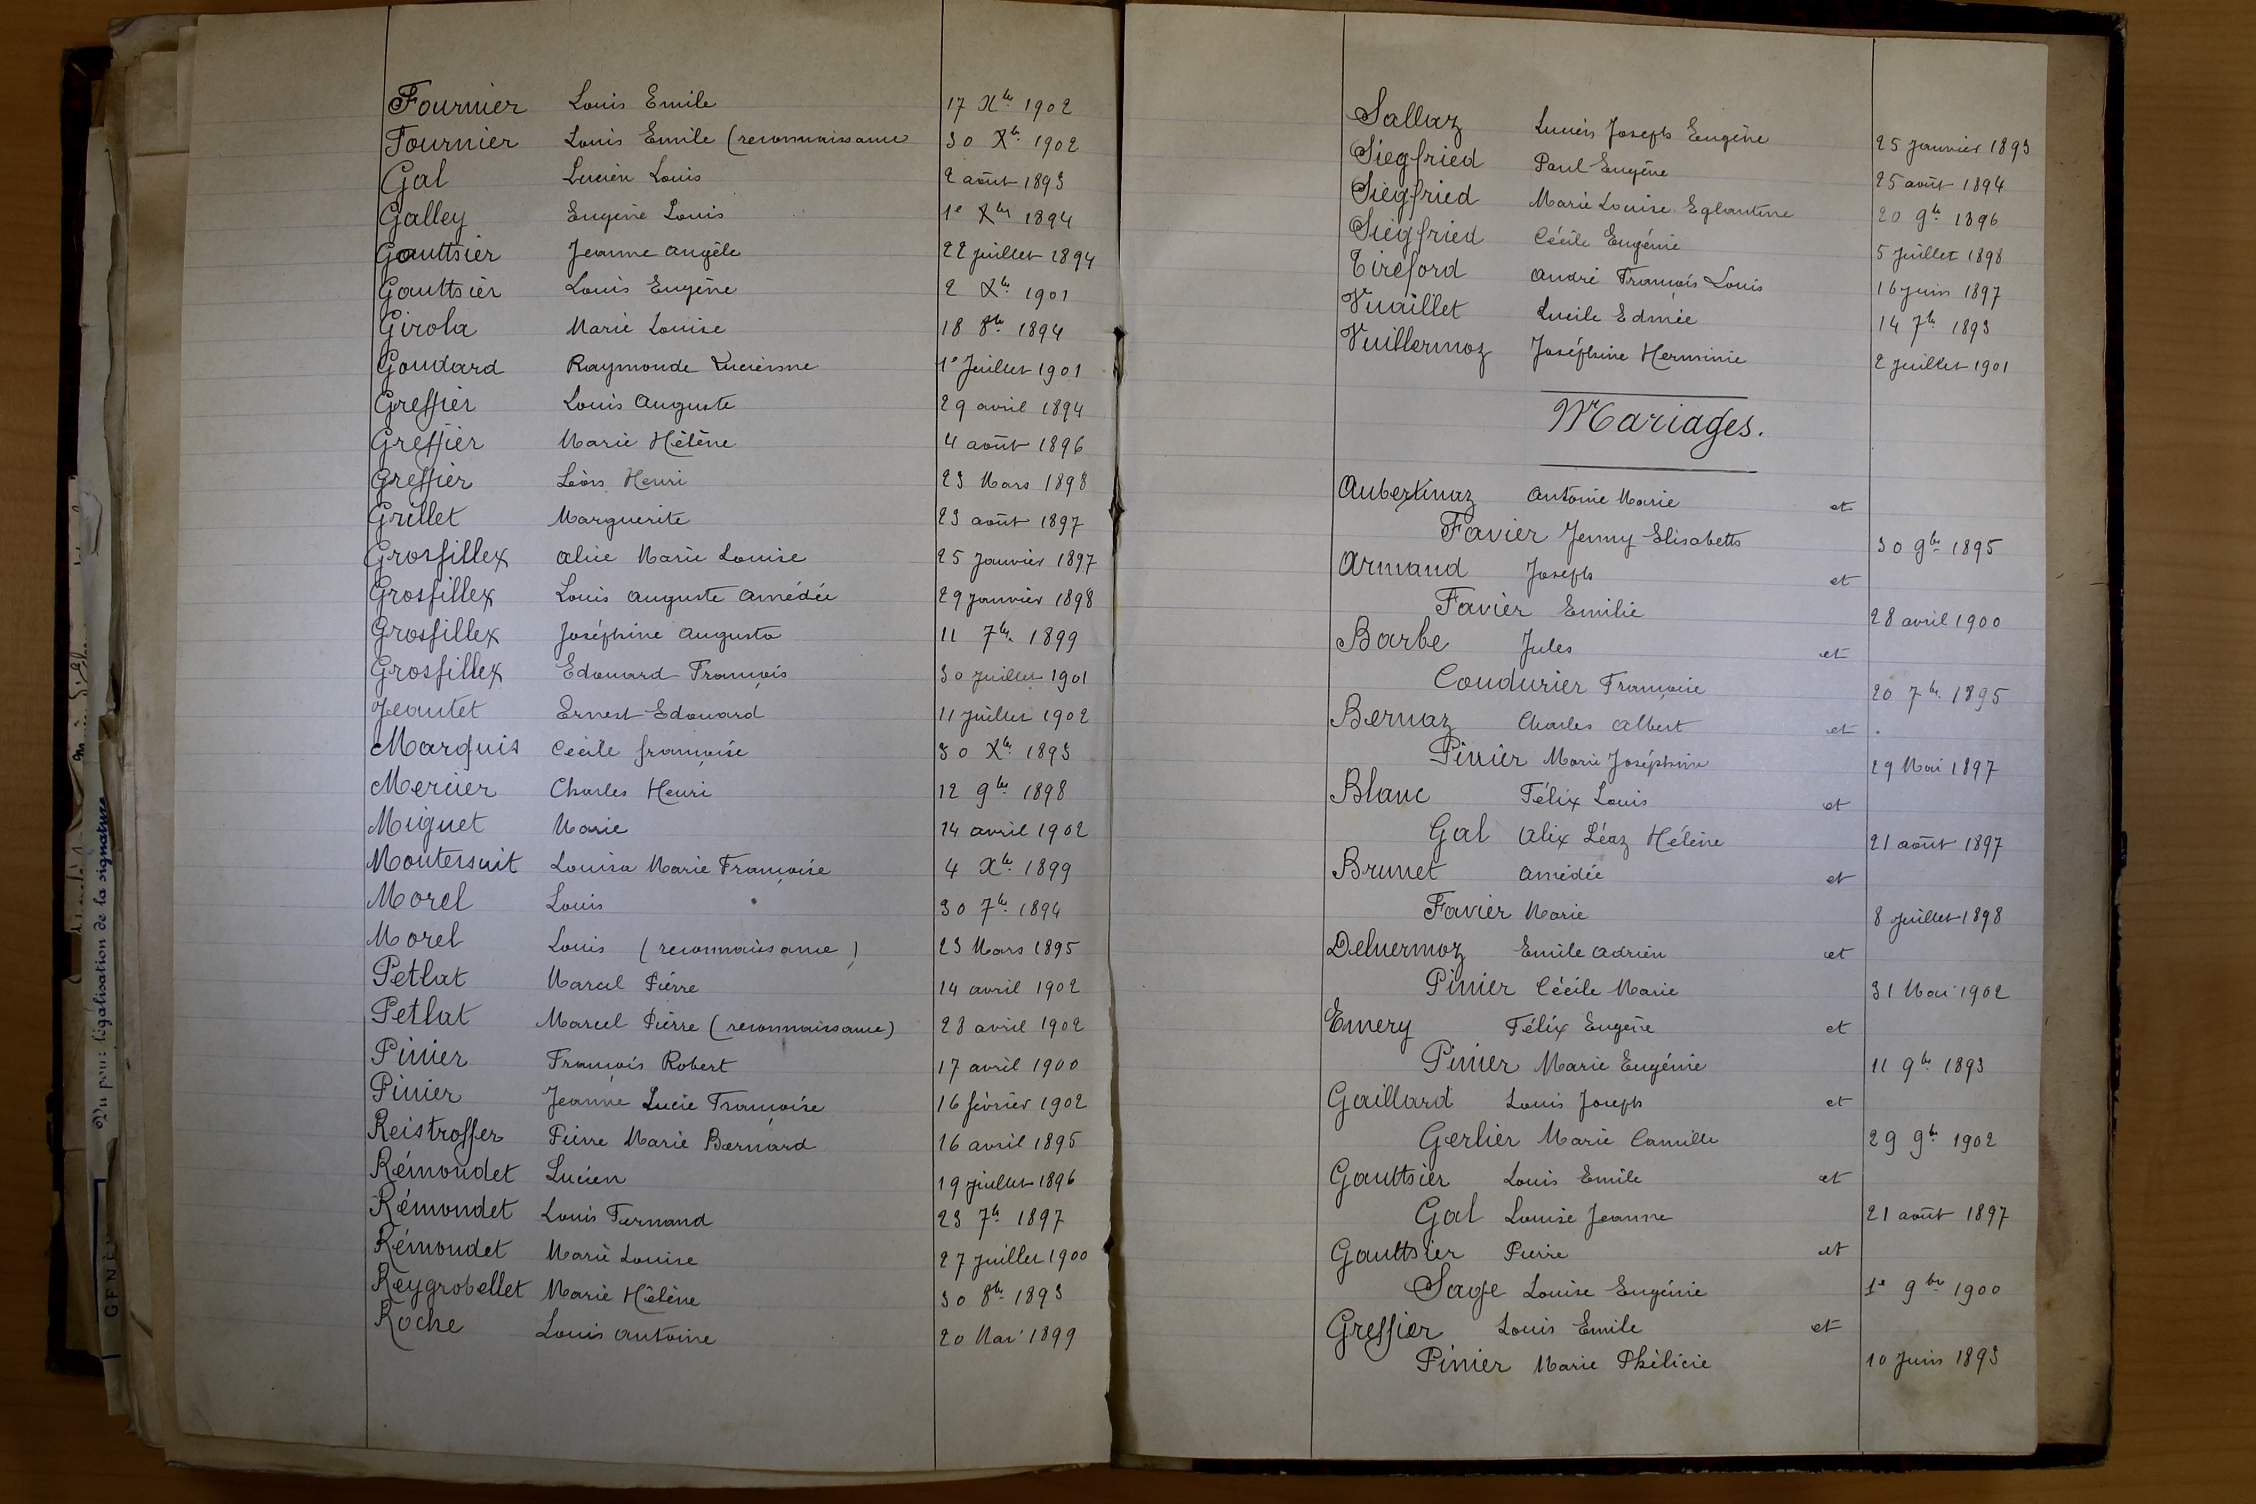 Fournier Louis Emile 17 Xbre 1902
Fournier Louis Emile (reconnaissance 30 Xbre 1902
Gal Lucien Louis 2 août 1893
Galley Eugène Louis 1e Xbre 1894
Gauttsier Jeanne Angèle 22 juillet 1894
Gauttsier Louis Eugène 2 Xbre 1901
Girola Marie Louise 18 8bre 1894
Goudard Raymonde Lucienne 1e Juillet 1901
Greffier Louis Auguste 29 avril 1894
Greffier Marie Hélène 4 août 1896
Greffier Léon Henri 23 Mars 1898
Grillet Marguerite 23 août 1897
Grosfillex Alice Marie Louise 25 Janvier 1897
Grosfillex Louis Auguste Amédée 29 Janvier 1898
Grosfillex Joséphine Augusta 11 7bre 1899
Grosfillex Edouard François 30 Juillet 1901
Jeantet Ernest Edouard 11 Juillet 1902
Marquis Cécile françoise 30 Xbre 1893
Mercier Charles Henri 12 9bre 1898
Miguet Marie 14 avril 1902
Montersuit Louisa Marie Françoise 4 Xbre 1899
Morel Louis 30 7bre 1894
Morel Louis (reconnaissance) 23 Mars 1895
Petlat Marcel Pierre 14 avril 1902
Petlat Marcel Pierre (reconnaissance) 28 avril 1902
Pinier François Robert 17 avril 1900
Pinier Jeanne Lucie Françoise 16 février 1902
Reistroffer Pierre Marie Bernard 16 avril 1895
Rémondet Lucien 19 juillet 1896
Rémondet Louis Fernand 23 7bre 1897
Rémondet Marie Louise 27 juillet 1900
Reygrobellet Marie Hélène 30 8bre 1893
Roche Louis Antoine 20 Mai 1899
Vu pour légalisation de la signature
Sallaz Lucien Joseph Eugène 25 Janvier 1893
Siegfried Paul Eugène 25 août 1894
Siegfried Marie Louise Eglantine 20 9bre 1896
Siegfried Cécile Eugénie 5 Juillet 1898
Tireford André François Louis 16 juin 1897
Vuaillet Lucile Edmée 14 7bre 1893
Vuillermoz Joséphine Herminie 2 Juillet 1901
Mariages.
Aubertinaz Antoine Marie et
Favier Jenny Elisabeth 30 9bre 1895
Armand Joseph et
Favier Emilie 28 avril 1900
Barbe Jules et
Coudurier Françoise 20 7bre 1895
Bernaz Charles Albert et
Pinier Marie Joséphine 29 Mai 1897
Blanc Félix Louis et
Gal Alix Léaz Hélène 21 août 1897
Brunet Amédée et
Favier Marie 8 Juillet 1898
Deluermoz Emile Adrien et
Pinier Cécile Marie 31 Mai 1902
Emery Félix Eugène et
Pinier Marie Eugénie 11 9bre 1893
Gaillard Louis Joseph et
Gerlier Marie Camille 29 9bre 1902
Gauttsier Louis Emile et
Gal Louise Jeanne 21 août 1897
Gauttsier Pierre et
Sage Louise Eugénie 1e 9bre 1900
Greffier Louis Emile et
Pinier Marie Phélicie 10 Juin 1893